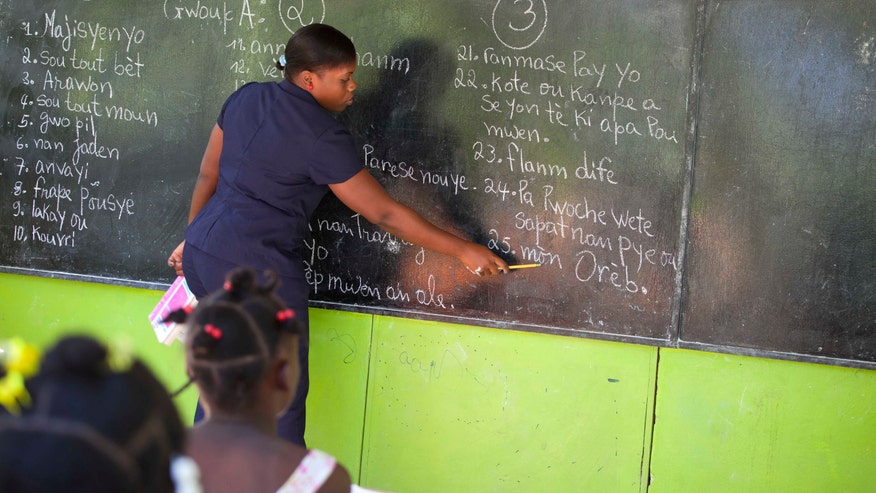 Gwoup A:
1. Majisyen yo
2. sou tout bèt
3. Arawon
4. sou tout moun
5. gwo pil
6. nan jaden
7. anvayi
8. frape pousyè
9. lakay ou
10. Kouvri
2
11. anm
12. Ve
Parese nou ye.
nan
yo
mwen an ale.
3
21. ranmase Pay yo
22. Kote ou kanpe a
se yon tè ki apa Pou
mwen.
23. flanm dife
24. Pa Pwoche wete
sapat nan pye ou
25. mòn Orèb.